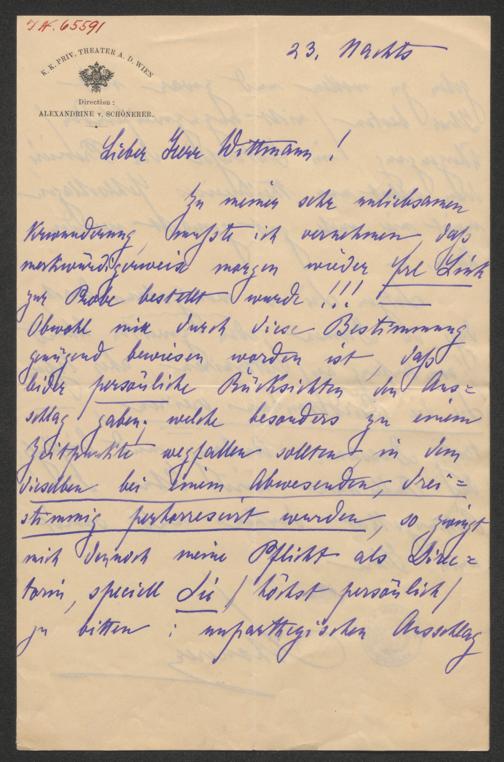 I.N. 65591
K. K. PRIV. THEATER A. D. WIEN
Direction:
ALEXANDRINE v. SCHÖNERER.
23. Nachts
Lieber Herr Wittmann!
Zu meiner sehr unliebsamen
Verwunderung, mußte ich vernehmen, daß
merkwürdigerweise morgen wieder Frl Link
zur Probe bestellt wurde!!!
Obwohl mir durch diese Bestimmung
genügend bewiesen worden ist, daß
leider persönliche Rücksichten den Aus=
schlag gaben, welche besonders zu einem
Zeitpunkte wegfallen sollten in dem
dieselben bei einem Abwesenden, drei=
stimmig perhorresciert wurden, so zwingt
mich dennoch meine Pflicht als Direc=
torin, speciell Sie / höchst persönlich /
zu bitten: unpartheyischen Ausschlag